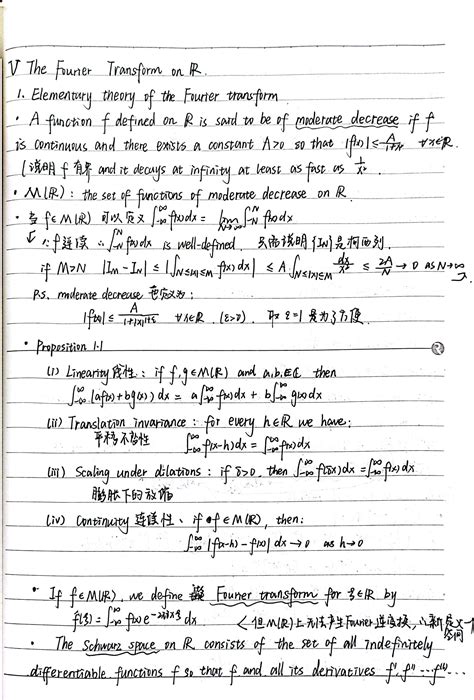 V The Fourier Transform on ℝ.
1. Elementary theory of the Fourier transform
· A function f defined on ℝ is said to be of moderate decrease if f
is continuous and there exists a constant A>0 so that |f(x)| ≤ A/(1+x²) ∀x∈ℝ.
(说明 f 有界 and it decays at infinity at least as fast as 1/x².
· M(ℝ): the set of functions of moderate decrease on ℝ.
· 当 f∈M(ℝ) 可以定义 ∫_{-∞}^{∞} f(x)dx = lim_{N→∞} ∫_{-N}^{N} f(x)dx
∵ f连续 ∴ ∫_{-N}^{N} f(x)dx is well-defined. 只需说明 {I_N} 是柯西列.
if M>N |I_M - I_N| ≤ |∫_{N≤|x|≤M} f(x)dx| ≤ A∫_{N≤|x|≤M} dx/x² ≤ 2A/N → 0 as N→∞
P.S. moderate decrease 也定义为:
|f(x)| ≤ A/(1+|x|^{1+ε}) ∀x∈ℝ. (ε>0). 取 ε=1 是为了方便.
· Proposition 1.1
(i) Linearity 线性: if f, g∈M(ℝ) and a, b∈ℂ then
∫_{-∞}^{∞} (af(x)+bg(x)) dx = a∫_{-∞}^{∞} f(x)dx + b∫_{-∞}^{∞} g(x)dx
(ii) Translation invariance: for every h∈ℝ we have:
平移不变性 ∫_{-∞}^{∞} f(x-h)dx = ∫_{-∞}^{∞} f(x)dx
(iii) Scaling under dilations: if δ>0, then ∫_{-∞}^{∞} f(δx)dx = ∫_{-∞}^{∞} f(x)dx
膨胀下的放缩
(iv) Continuity 连续性、if f∈M(ℝ), then:
∫_{-∞}^{∞} |f(x-h)-f(x)| dx → 0 as h→0
· If f∈M(ℝ), we define Fourier transform for ξ∈ℝ by
f̂(ξ) = ∫_{-∞}^{∞} f(x) e^{-2πixξ} dx < 但M(ℝ)上无法产生Fourier
· The Schwarz space on ℝ consists of the set of all indefinitely
differentiable functions f so that f and all its derivatives f', f'' ... f^{(l)} ...